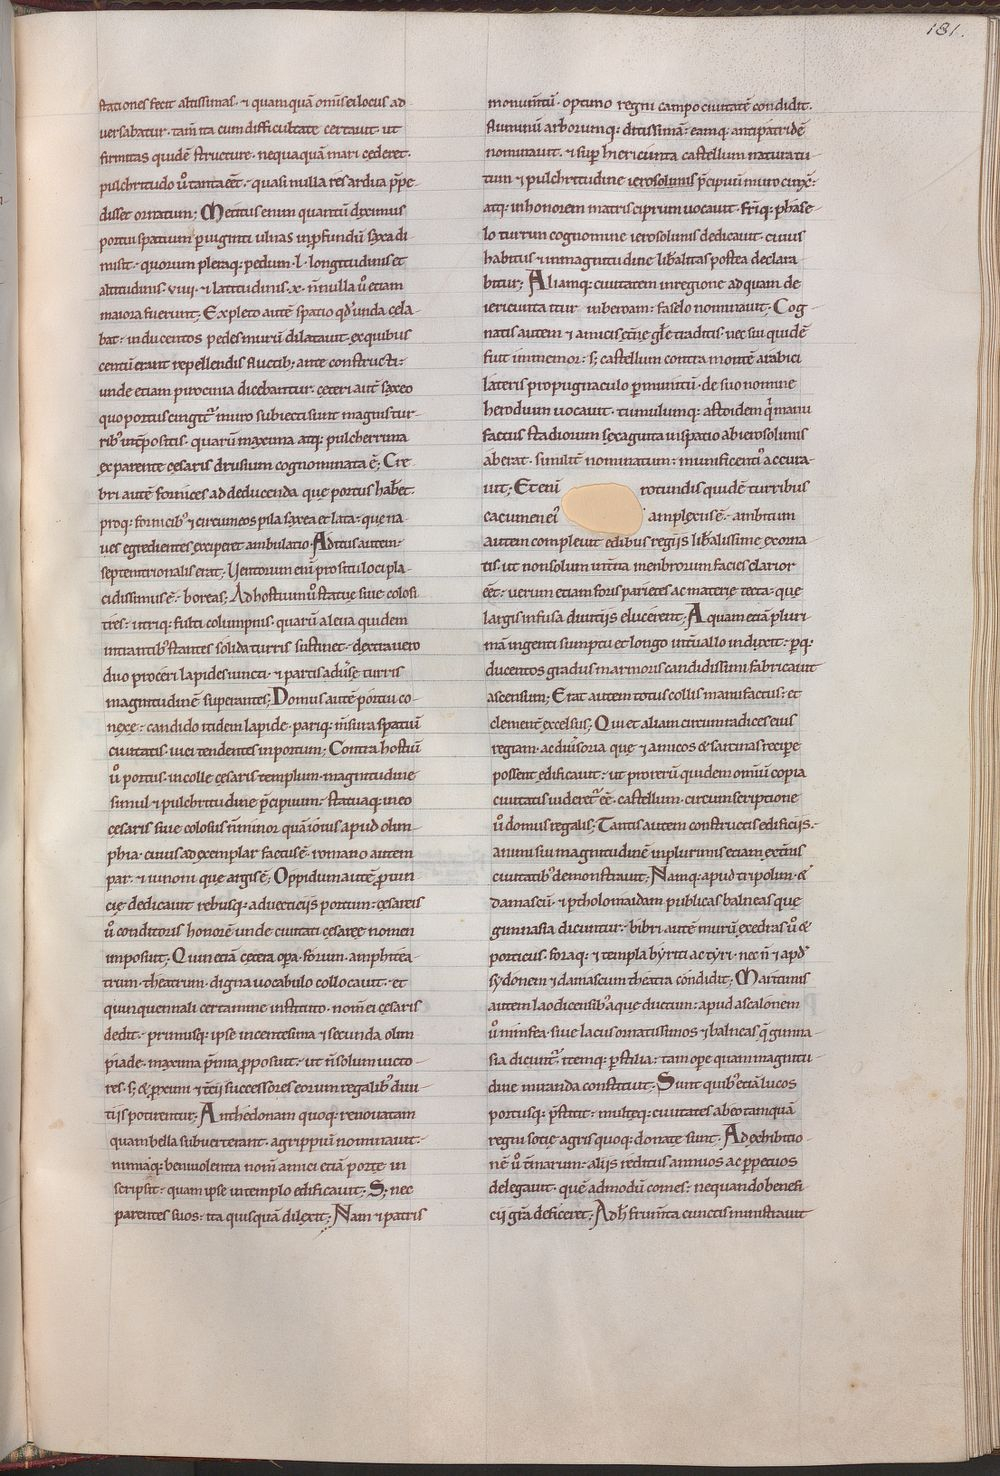 181.
stationes fecit altissimas· ⁊ quamquā om̄is ei locus ad
versabatur· tam̄ ita cum difficultate certavit· ut
firmitas quidē structure· nequaquā mari cederet·
pulchritudo u̅o tanta eēt· quasi nulla res ardua p̄pe-
disset ornatum; Metitus enim quantū diximus
portui spatium p̱ uiginti ulnas in p̱fundū saxa di
misit· quorum pleraq; pedum· l· longitudinis et
altitudinis· viiii· ⁊ latitudinis· x· n̄nulla u̅o etiam
maiora fuerunt; Expleto autē spatio qđ unda cęla
bat· in ducentos pedes murū dilatavit· ex quibus
centū erant repellendis fluctib; ante constructi:
unde etiam procimia dicebantur· ceteri autē saxeo
quo portus cingit̄ muro subiecti sunt magnis tur-
rib; int̄positis· quarū maxima atq; pulcherrima
ex parente cęsaris drusium cognominata ē; Cre
bri autē fornices ad deducenda que portus hab&·
proq; fornicib; ⁊ circum eos pila saxea et lata· que na
ves egredientes exciperet ambulatio· Aditus autem·
septentrionalis erat· Ventorum enī pro situ loci pla
cidissimus ē· boreas; Ad hostium u̅o statue siue colosi
tres· utriq; fulti columpnis· quarū alcua quidem
intrantib; stantes solida turris sustinet· dextra vero
duo proceri lapides iuncti· ⁊ partis adūse turris
magnitudinē superantes; Domus autē portui co-
nexe· candido itidem lapide· pariq; m̄sura spatiū
civitatis· uici tendentes in portum; Contra hostiū
u̅o portus· in colle cęsaris templum· magnitudine
simul ⁊ pulchritudine p̄cipuum· statuaq; in eo
cęsaris siue colosus n̄ minor quā iovis apud olim-
phia· cuius ad exemplar factus ē· romano autem
par· ⁊ iunoni que argis ē; Oppidum autē provin
cie dedicavit rebusq; advecticijs portum: cęsareis
u̅o conditoris honorē unde civitati cęsaree nomen
imposuit; Quin etiā cetera opa· forum· amphitea-
trum· theatrum· digna vocabulo collocavit· et
quinquennali certamine instituto· nom̄ ei cesaris
dedit· primusq; ipse incentesima ⁊ secunda olim
piade· maxima p̄mia p̱posuit· ut n̄ solum victo-
res· s; & p̱ximi ⁊ tc̄ii successores eorum regalib; divi-
tiis potirentur; Anthedonam quoq; renovatam
quam bella subverterant· agrippiū nominavit·
nimiaq; benivolentia nom̄ amici etiā portę in
scripsit· quam ipse in templo edificavit; S; nec
parentes suos· ita quisquā dilexit; Nam ⁊ patris
monum̄tū· optimo regni campo civitatē condidit·
fluminū arborumq; ditissimā· eamq; antipatridē
nominavit· ⁊ sup hiericunta castellum natura tu-
tum ⁊ pulchritudine ierosolimis p̄cipuū muro cinx̄·
atq; in honorem matris ciprum vocavit· fr̄iq; phase-
lo turrim cognomine ierosolimis dedicavit· cuius
habitus ⁊ in magnitudine lib̄alitas postea declara
bitur; Aliamq; civitatem in regione ad quam de
iericunta itur in boream· faselo nominavit· Cog-
natis autem ⁊ amicis et̄nę gl̄e traditis· nec sui quidē
fuit immemor· s; castellum contra montē arabici
lateris propugnaculo p̱munitū· de suo nomine
herodium vocavit· tumulumq; altoidem q̄ manu
factus stadiorum sexaginta in spatio ab ierosolimis
aberat· similit̄ nominatum· munificenti; accura-
vit; Et enī rotundis quidē turribus
cacumen ei; amplexus ē· ambitum
autem complevit edibus regijs lib̄alissime exorna-
tis· ut non solum int̄na menbrorum facies clarior
eēt· verum etiam foris parietes ac materie· tecta· que
largis infusa divitijs elucerent; Aquam etiā pluri-
mā ingenti sumptu et longo int̄vallo induxit· perq;
ducentos gradus marmoris candidissimi fabricavit
ascensum; Erat autem totus collis manu factus· et
clementē excelsus; Qui et aliam circum radices eius
regiam· ac div̄soria que ⁊ amicos & sarcinas recipe
possent edificavit· ut pro rerū quidem om̄iū copia
civitatis videret̄ ee̅· castellum· circumscriptione
u̅o domus regalis; Tantis autem constructis edificiis·
animi sui magnitudinē in plurimis etiam ext̄nis
civitatib; demonstravit; Namq; apud tripolim· &
damascū· ⁊ ptholomaidam publicas balneas que
gimnasia dicuntur· bibri autē murū exedras u̅o &
porticus· foraq; ⁊ templa byriti ac tyri· nec n̄ ⁊ apđ
sydonem ⁊ damascum theatra condidit; Maritimis
autem laodicensib; aque ductum: apud ascalonem
u̅o minfea· siue lacus ornatissimos ⁊ balneas q̄ gimna-
sia dicunt̄· itemq; p̱stilia· tam ope quam magnitu-
dine miranda constituit; Sunt quib; etiā lucos
portusq; p̄stitit· multęq; civitates ab eo tamquā
regni socię agris quoq; donate sunt· Ad exhibitio-
nē u̅o t̄marum· aliis reditus annuos ac p̱petuos
delegavit· quē admodū comes· ne quando benefi
cii gr̄a deficeret; Ad h̄ frum̄ta cunctis ministravit